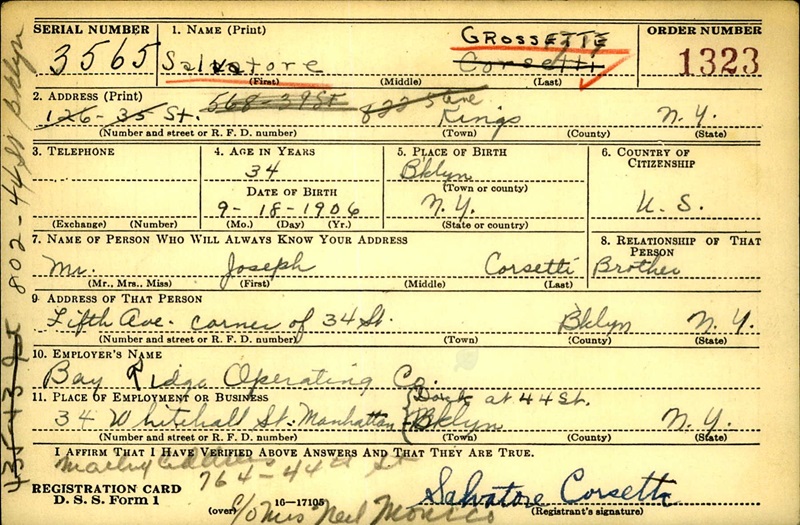 SERIAL NUMBER 1. NAME (Print) ORDER NUMBER
GROSSETTE
3565 Salvatore Corsetti 1323
(First) (Middle) (Last)
2. ADDRESS (Print) 668-39 St 822 5 Ave.
126-35 St. Kings N.Y.
(Number and street or R. F. D. number) (Town) (County) (State)
3. TELEPHONE 4. AGE IN YEARS 5. PLACE OF BIRTH 6. COUNTRY OF CITIZENSHIP
34 Bklyn
DATE OF BIRTH (Town or county)
9-18-1906 N.Y. U.S.
(Exchange) (Number) (Mo.) (Day) (Yr.) (State or country)
7. NAME OF PERSON WHO WILL ALWAYS KNOW YOUR ADDRESS 8. RELATIONSHIP OF THAT PERSON
Mr. Joseph Corsetti Brother
(Mr., Mrs., Miss) (First) (Middle) (Last)
9. ADDRESS OF THAT PERSON
Fifth Ave. corner of 34 St. Bklyn N.Y.
(Number and street or R. F. D. number) (Town) (County) (State)
10. EMPLOYER'S NAME
Bay Ridge Operating Co.
11. PLACE OF EMPLOYMENT OR BUSINESS Dock at 44 St.
34 Whitehall St. Manhattan Bklyn N.Y.
(Number and street or R. F. D. number) (Town) (County) (State)
I AFFIRM THAT I HAVE VERIFIED ABOVE ANSWERS AND THAT THEY ARE TRUE.
Mailing Address
764-44th St
REGISTRATION CARD
D. S. S. Form 1 16-17105 Salvatore Corsetti
(over) c/o Mrs Neil Monico (Registrant's signature)
802-44 St Bklyn
435-43 St